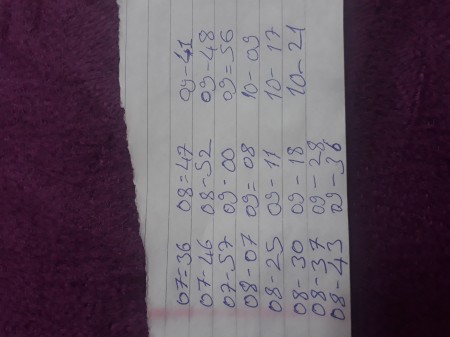 07-36 08=47 09-41
07-46 08-52 09-48
07-57 09-00 09=56
08-07 09=08 10-09
08-25 09-11 10-17
08-30 09-18 10-21
08-37 09-28
08-43 09-36